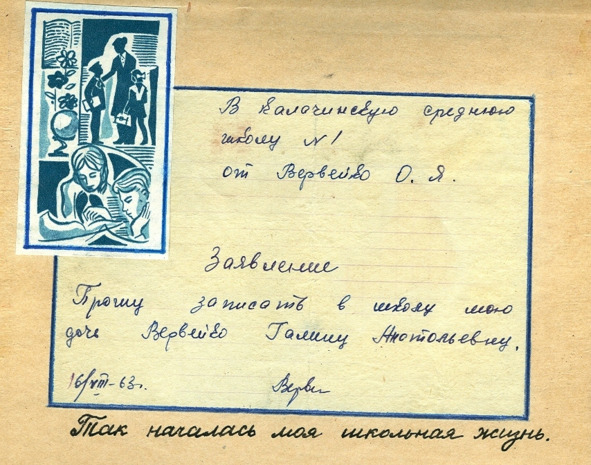 В Калачинскую среднюю
школу №1
от Вервейко О. Я.
Заявление
Прошу записать в школу мою
дочь Вервейко Галину Анатольевну.
16/VIII-63г. Верви
Так началась моя школьная жизнь.